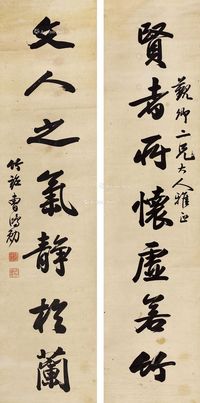 賢者所懷虛若竹
觀卿二兄大人雅正
文人之氣靜於蘭
竹銘曹鴻勛